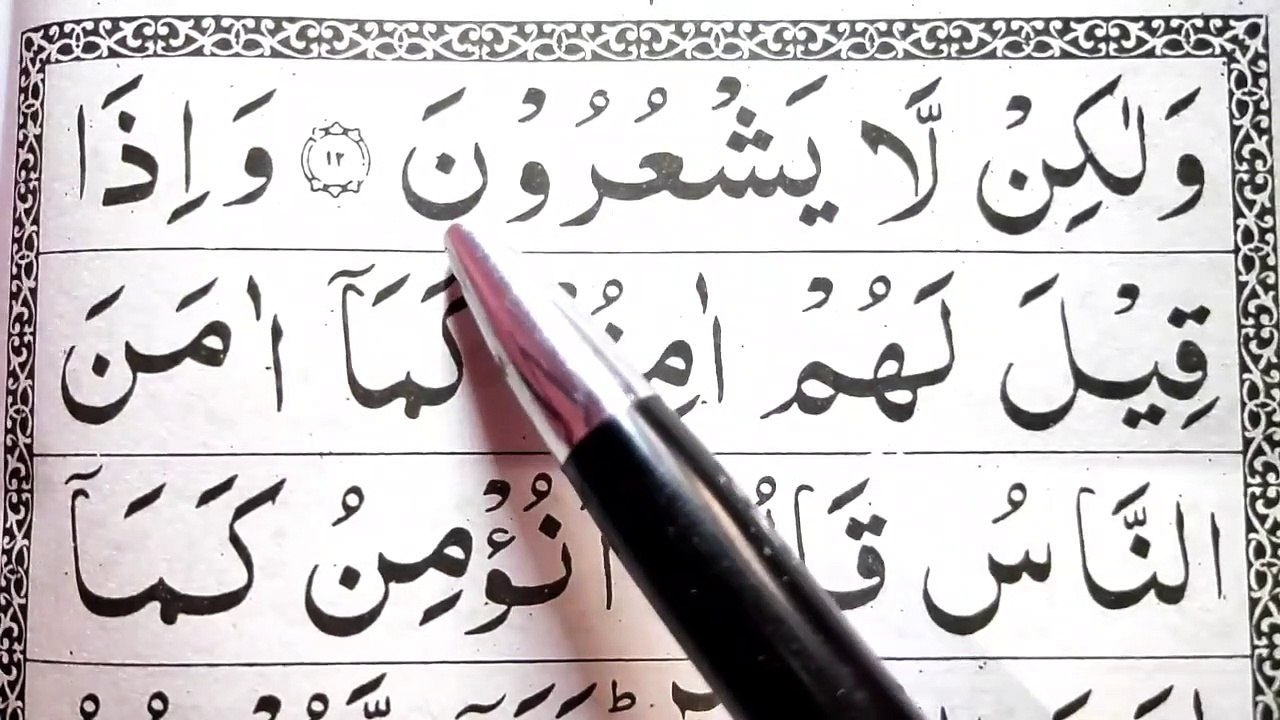 وَلٰكِنْ لَّا يَشْعُرُوْنَ ١٢ وَاِذَا
قِيْلَ لَهُمْ كَمَاۤ اٰمَنَ
النَّاسُ نُؤْمِنُ كَمَاۤ